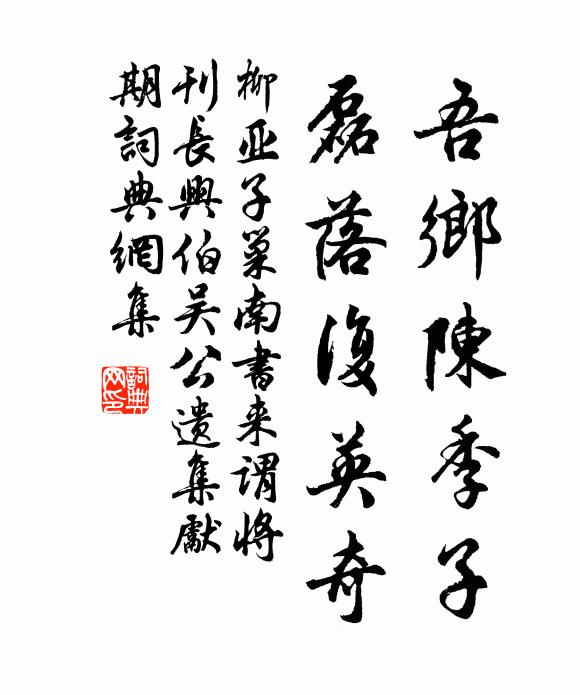 吾鄉陳季子
磊落復英奇
柳亚子巢南書来謂將
刊長興伯吴公遺集獻
期詞典網集
詞典
网印